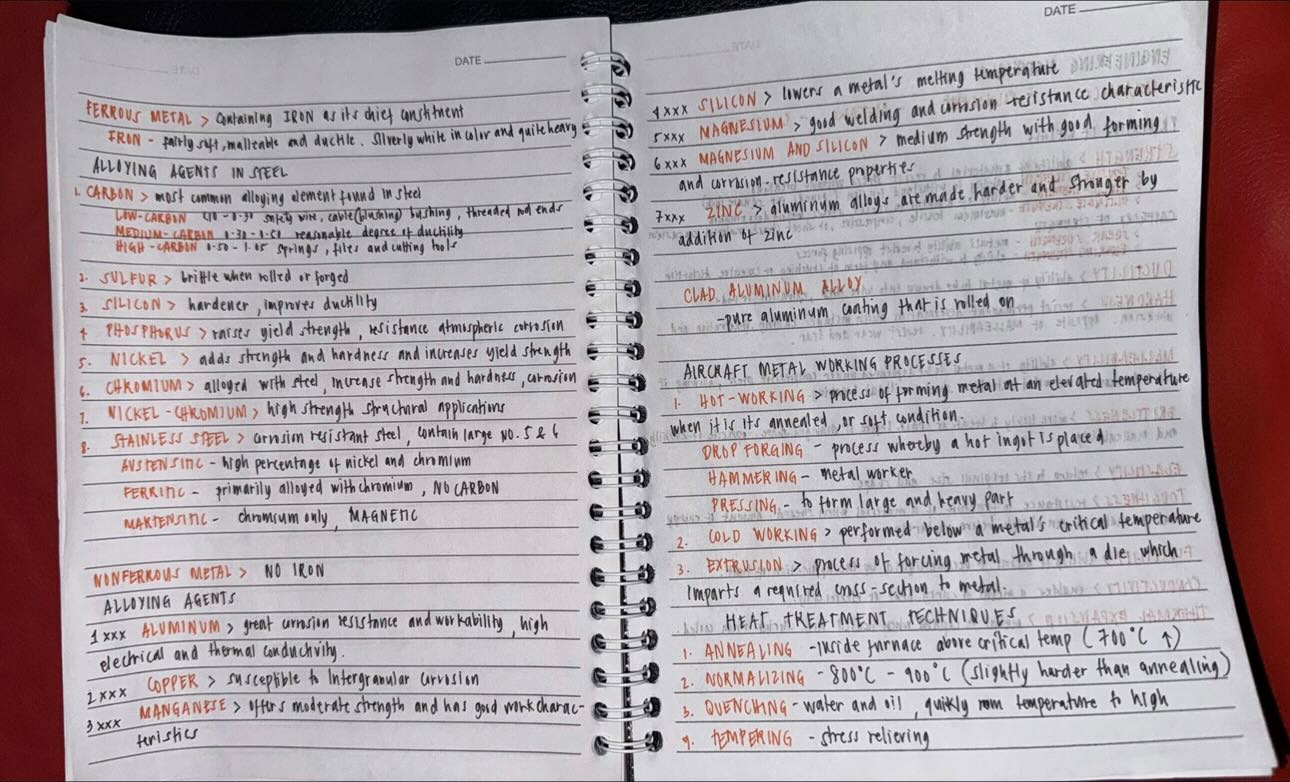 DATE
FERROUS METAL > containing IRON as its chief constituent
IRON - fairly soft, malleable and ductile. Silverly white in color and quite heavy
ALLOYING AGENTS IN STEEL
1. CARBON > most common alloying element found in steel
LOW-CARBON .10 - 0.30 safety wire, cable(bushing) bushing, threaded rod ends
MEDIUM-CARBON 0.30-0.50 reasonable degree of ductility
HIGH-CARBON 0.50-1.05 springs, files and cutting tools
2. SULFUR > brittle when rolled or forged
3. SILICON > hardener, improves ductility
4 PHOSPHORUS > raises yield strength, resistance atmospheric corrosion
5. NICKEL > adds strength and hardness and increases yield strength
6. CHROMIUM > alloyed with steel, increase strength and hardness, corrosion
7. NICKEL-CHROMIUM > high strength structural applications
8. STAINLESS STEEL > corrosion resistant steel, contain large NO. 5 & 6
AUSTENSITIC - high percentage of nickel and chromium
FERRITIC - primarily alloyed with chromium, NO CARBON
MARTENSITIC - chromium only, MAGNETIC
NONFERROUS METAL > NO IRON
ALLOYING AGENTS
1xxx ALUMINUM > great corrosion resistance and workability, high
electrical and thermal conductivity.
2xxx COPPER > susceptible to Intergranular Corrosion
3xxx MANGANESE > offers moderate strength and has good work charac-
teristics
DATE
4xxx SILICON > lowers a metal's melting temperature
5xxx MAGNESIUM > good welding and corrosion-resistance characteristic
6xxx MAGNESIUM AND SILICON > medium strength with good forming
and corrosion-resistance properties
7xxx ZINC > aluminum alloys are made harder and stronger by
addition of zinc
CLAD ALUMINUM ALLOY
-pure aluminum coating that is rolled on
AIRCRAFT METAL WORKING PROCESSES
1. HOT-WORKING > process of forming metal at an elevated temperature
when it is its annealed, or soft condition.
DROP FORGING - process whereby a hot ingot is placed
HAMMERING - metal worker
PRESSING - to form large and heavy part
2. COLD WORKING > performed below a metal's critical temperature
3. EXTRUSION > process of forcing metal through a die which
imparts a required cross-section to metal.
HEAT TREATMENT TECHNIQUES
1. ANNEALING - inside furnace above critical temp (700°C ↑)
2. NORMALIZING - 800°C - 900°C (slightly harder than annealing)
3. QUENCHING - water and oil, quickly room temperature to high
4. TEMPERING - stress relieving